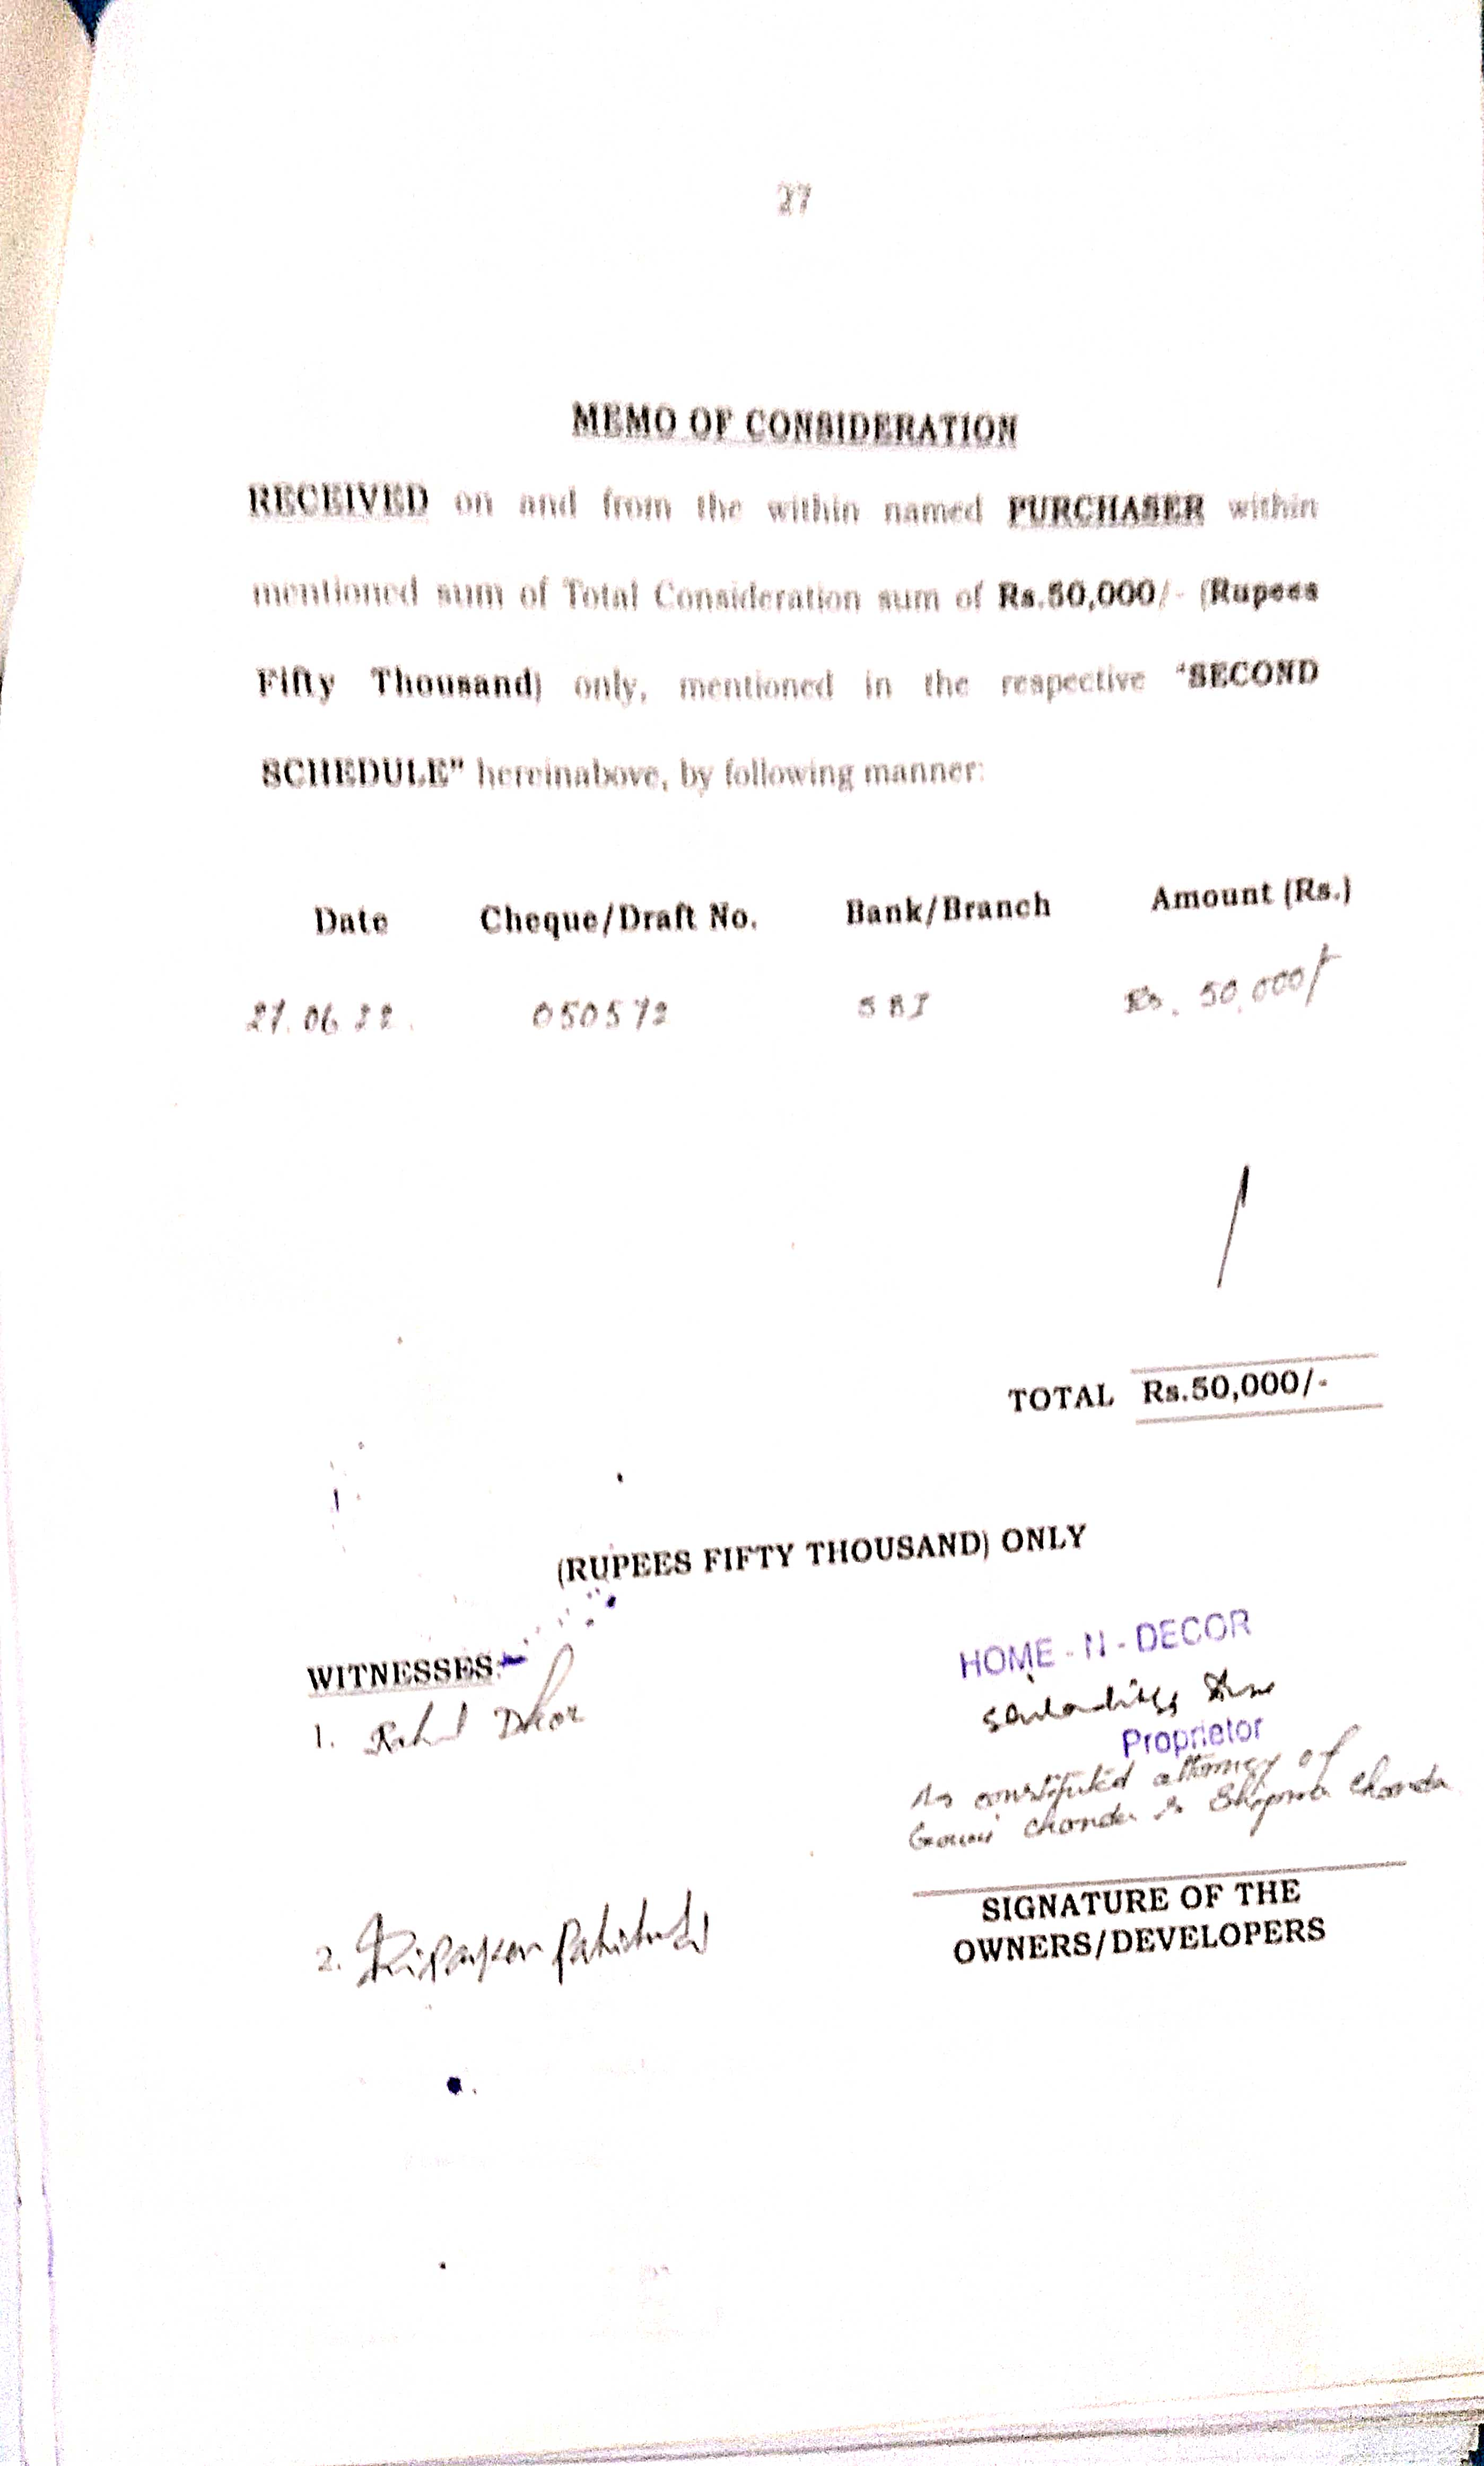 27
MEMO OF CONSIDERATION
RECEIVED on and from the within named PURCHASER within
mentioned sum of Total Consideration sum of Rs.50,000/- (Rupees
Fifty Thousand) only, mentioned in the respective "SECOND
SCHEDULE" hereinabove, by following manner:
Date Cheque/Draft No. Bank/Branch Amount (Rs.)
06 050572 SBI Rs. 50,000/-
TOTAL Rs.50,000/-
(RUPEES FIFTY THOUSAND) ONLY
WITNESSES:-
HOME - N - DECOR
1. Rahul
Proprietor
As constituted attorney of
Chanda & Chanda
SIGNATURE OF THE
OWNERS/DEVELOPERS
2.